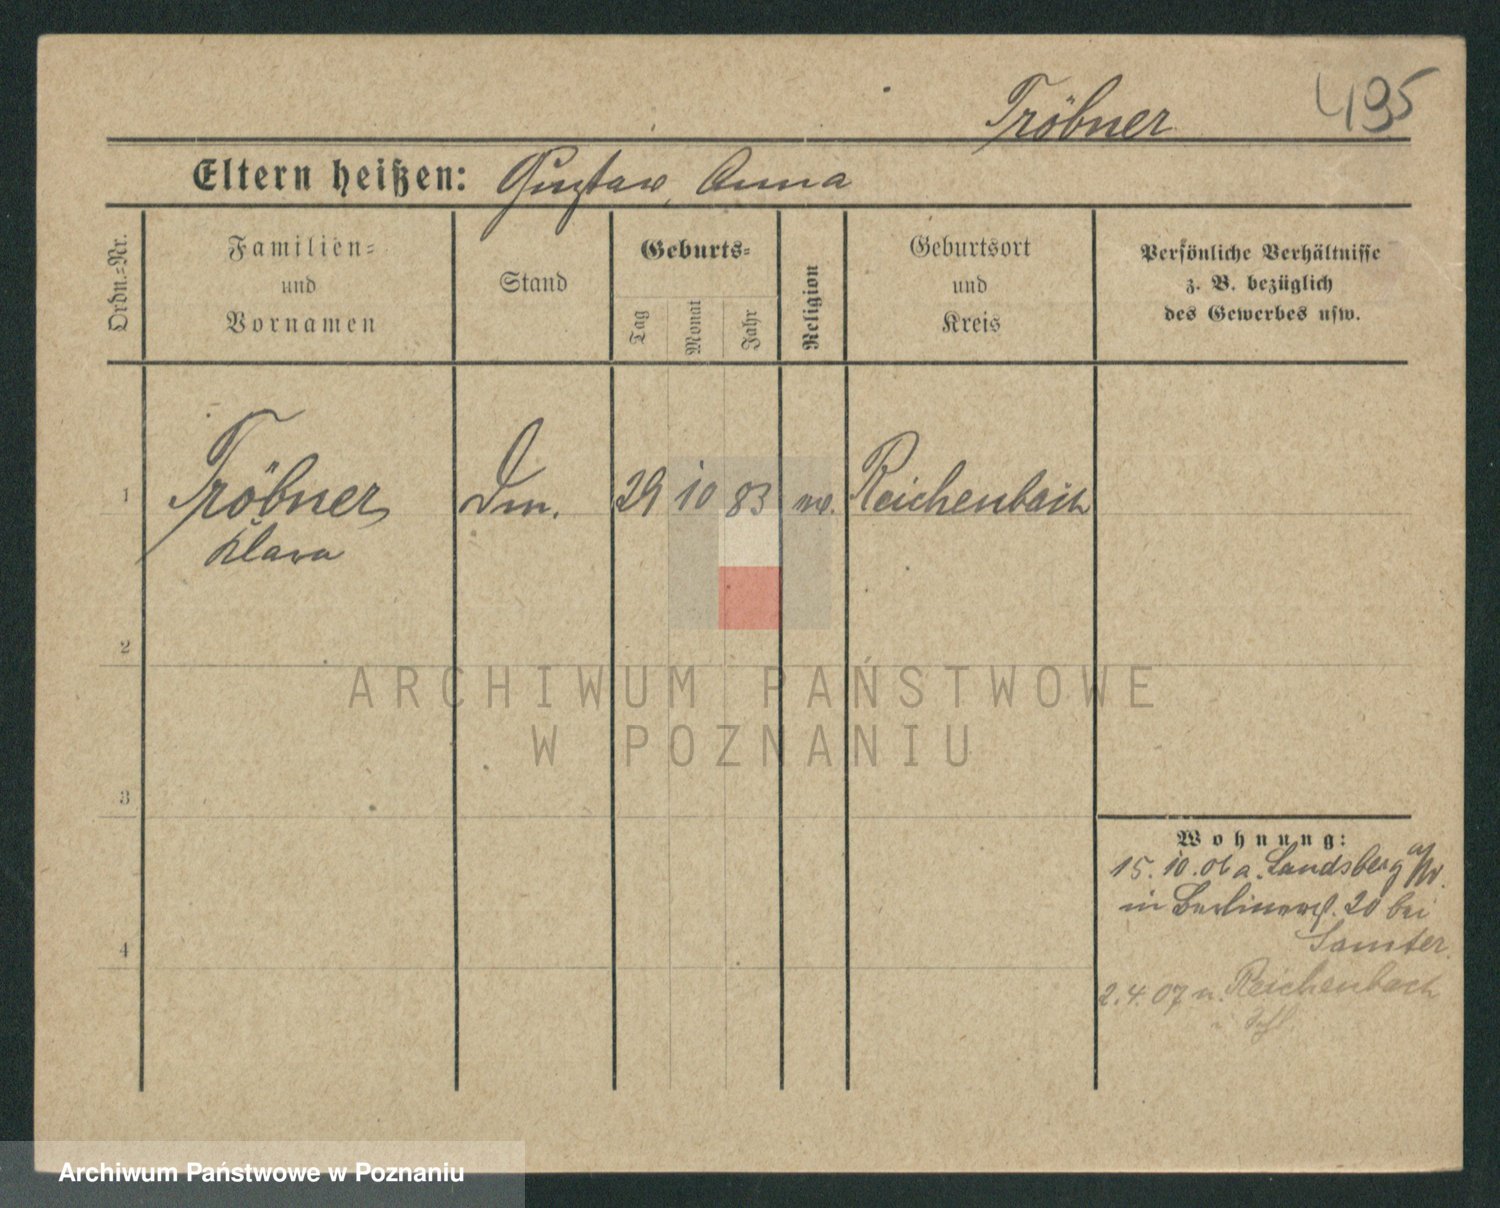 Tröbner
495
Eltern heißen: Gustav, Anna
Ordn.=Nr.
Familien=
und
Vornamen
Stand
Geburts=
Tag
Monat
Jahr
Religion
Geburtsort
und
Kreis
Persönliche Verhältnisse
z. B. bezüglich
des Gewerbes usw.
1 Tröbner 29 10 83 Reichenbach
Klara
2
3
4
ARCHIWUM PAŃSTWOWE
W POZNANIU
Wohnung:
15.10.06 a. Landsberg
in 20 bei
Samter.
2.4.07 n. Reichenbach
Archiwum Państwowe w Poznaniu